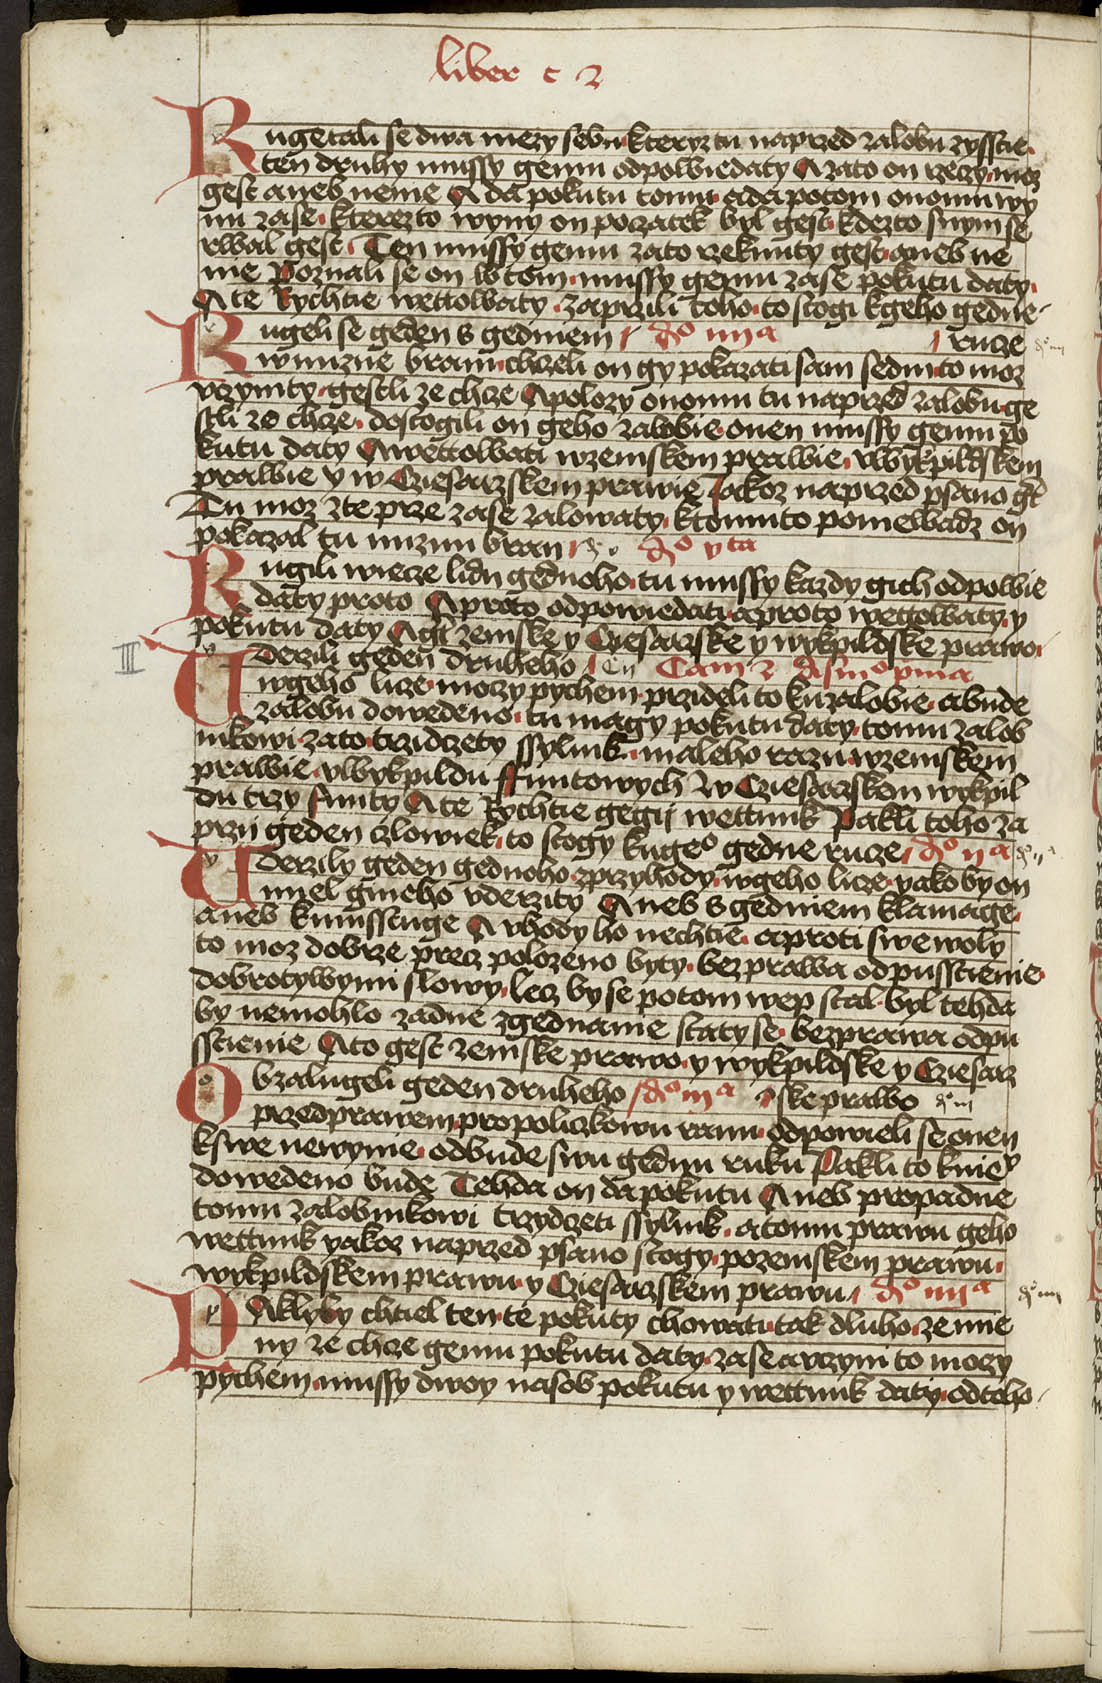 liber c 2
Rugetali se dwa mezy sebu kteryz tu naprzed zalobu zyssctie
ten druhy mussy gemu odpowiedaty A zato on rzeczy moz
gest aneb neme A da pokutu tomu a da potom onomu wy
nu zase kterezto wyny on poczatek byl gest kdezto snym se
rwal gest Ten mussy gemu zato rzeknuty gest aneb ne
nie Poznali se on w tom mussy gemu zase pokutu daty
A te Rychtie wettowaty zaprzili toho to stogi k geho gedne
Rugeli se geden s gedniem do iiiia rucze
w nuzne branu chczeli on gy pokazati sam sedm to moz
vczynity gestli ze chcze A polozy onomu tu naprzed zalobu ge
stli ze chcze dostogili on geho zalobie onen mussy gemu po
kutu daty A wettowati wzemskem prawie vwykpildskem
prawie y w Cziesarzskem prawie Jakoz naprzed psano gt
Tu moz zte prze zase zalowaty ktomuto poniewadz on
pokazal tu nuznu bran do vta
Rugili wiecze lidu gednoho tu mussy kazdy gich odpowie
daty proto A proto odpowiedati aproto wettowaty y
pokutu daty A gt zemske y Cziesarske y wykpildske prawo
III Vderzili geden druheho Cam 2 dismo prima
wgeho licze moczy pychem przideli to kuzalobie abude
zalobu dowedeno tu magy pokutu daty tomu zalob
nikowi zato trzidczety ssylink maleho razu wzemskem
prawie vwykpildu ffuntowych W Cziesarzskem wykpil
du trzy funty A te Rychtie gegij wettunk Pakli toho za
przij geden czlowiek to stogy kugeo gedne rucze do iia
Vderzily geden gednoho zprzyhody wgeho licze yako by on
mel gineho vderzity Aneb s gedniem klamage
aneb kunssctuge A vhody ho nechtie aproti swe woly
to moz dobrze precz polozeno byty bez prawa odpusstienie
dobrotywymi slowy lecz by se potom wep stal byl tehda
by nemohlo zadne zgednanie statyse bezprawa odpu
sstienie Ato gest zemske prawo y wykpildske y Cziesarz
Obzalugeli geden druheho do iiia ske prawo
przedprawem propoliczkowu ranu odpowieli se onen
kswe newynie odbude swu gednu ruku Pakli to knie
dowedeno bude Tehda on da pokutu Aneb propadne
tomu zalobnikowi trzydczeti ssylink a tomu prawu geho
wettunk yakoz naprzed psano stogy pozemskem prawu
wykpildskem prawu y Cziesarzskem prawu do iiiia
Paklyby chtiel ten te pokuty chowati tak dluho ze mnie
ny ze chcze gemu pokutu daty zase aczyni to moczy
pychem mussy dwoy nasob pokutu y wettunk daty odtoho